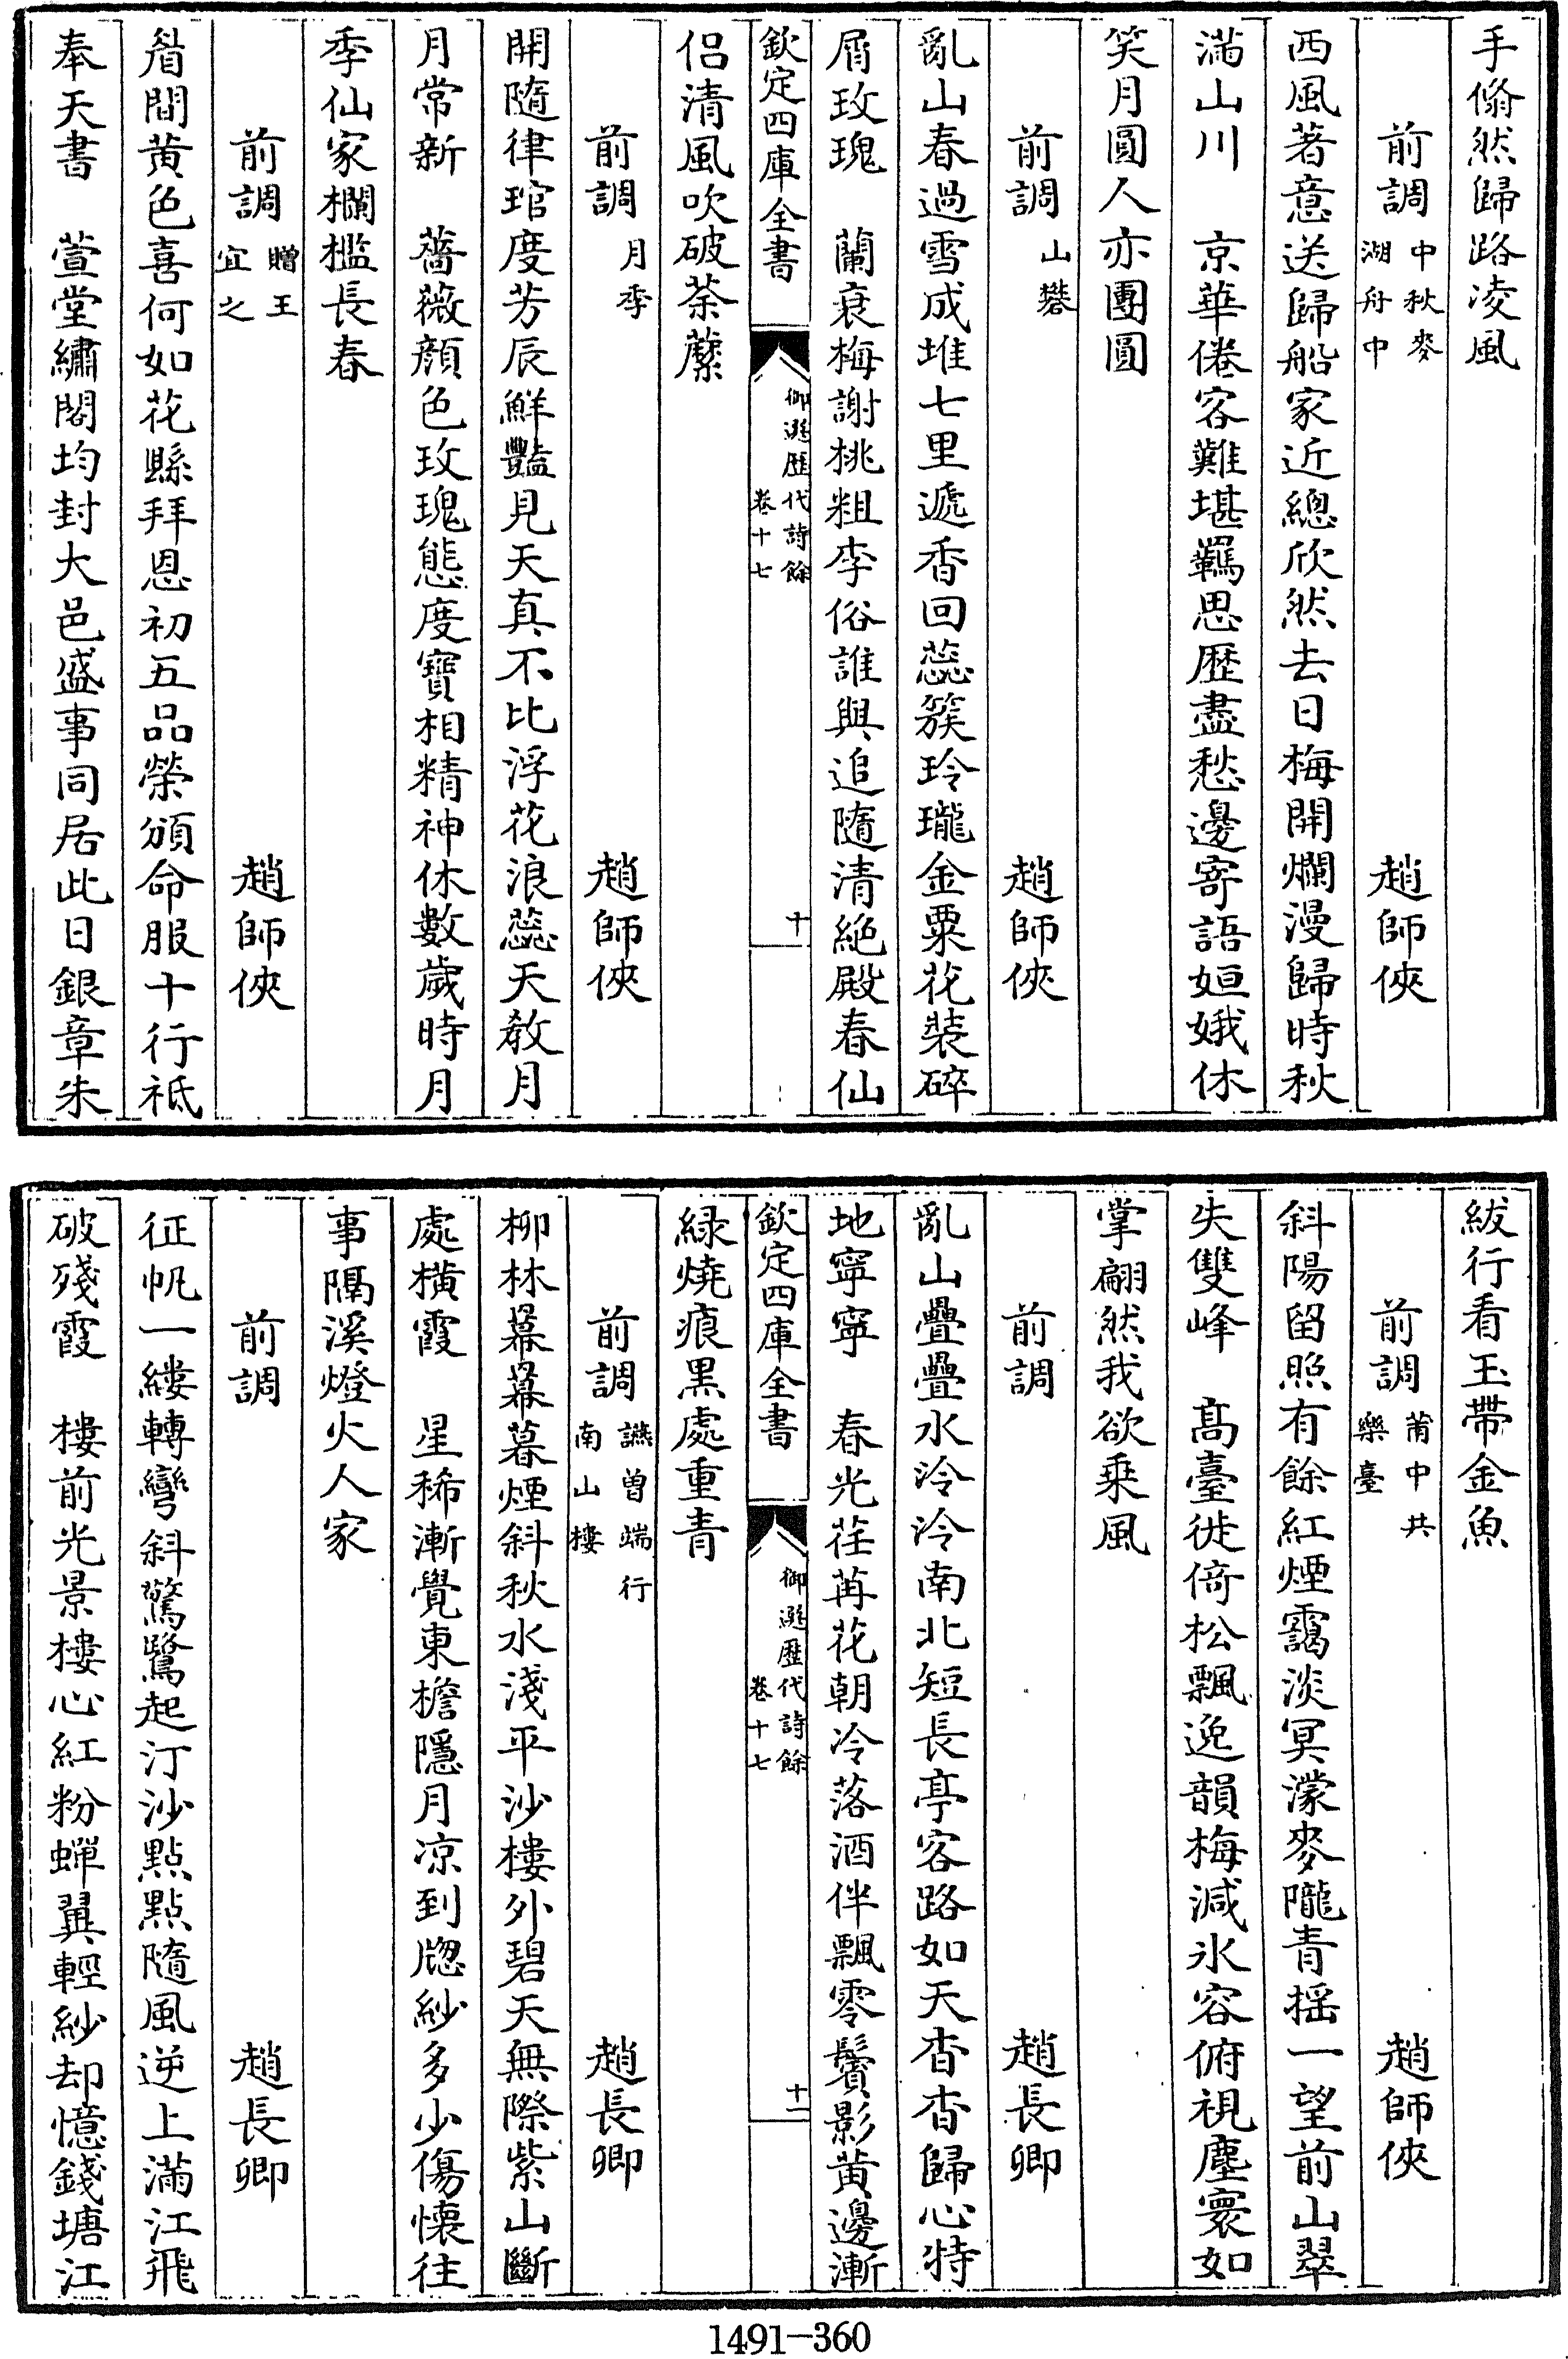 手翛然歸路凌風
前調 中秋麥湖舟中 趙師俠
西風著意送歸船家近總欣然去日梅開爛漫歸時秋
滿山川 京華倦客難堪羈思歴盡愁邊寄語姮娥休
笑月圓人亦團圓
前調 山礬 趙師俠
亂山春過雪成堆七里遞香回蕊簇玲瓏金粟花裝碎
屑玫瑰 蘭衰梅謝桃粗李俗誰與追隨清絶殿春仙
欽定四庫全書 御選歴代詩餘 卷十七 十
侣清風吹破荼蘼
前調 月季 趙師俠
開隨律琯度芳辰鮮豔見天真不比浮花浪蕊天敎月
月常新 薔薇顔色玫瑰態度寶相精神休數歲時月
季仙家欄檻長春
前調 贈王宜之 趙師俠
眉間黃色喜何如花縣拜恩初五品榮頒命服十行祗
奉天書 萱堂繡閣均封大邑盛事同居此日銀章朱
紱行看玉帶金魚
前調 莆中共樂臺 趙師俠
斜陽留照有餘紅煙靄淡冥濛麥隴青揺一望前山翠
失雙峰 髙臺徙倚松飄逸韻梅減氷容俯視塵寰如
掌翩然我欲乗風
前調 趙長卿
亂山疊疊水泠泠南北短長亭客路如天杳杳歸心特
地寧寧 春光荏苒花朝冷落酒伴飄零鬢影黃邊漸
欽定四庫全書 御選歴代詩餘 卷十七 十一
緑燒痕黑處重青
前調 讌曽端行南山樓 趙長卿
柳林冪冪暮煙斜秋水淺平沙樓外碧天無際紫山斷
處橫霞 星稀漸覺東檐隱月凉到牎紗多少傷懷往
事隔溪燈火人家
前調 趙長卿
征帆一縷轉彎斜驚鷺起汀沙點點隨風逆上滿江飛
破殘霞 樓前光景樓心紅粉蟬翼輕紗却憶錢塘江
1491-360